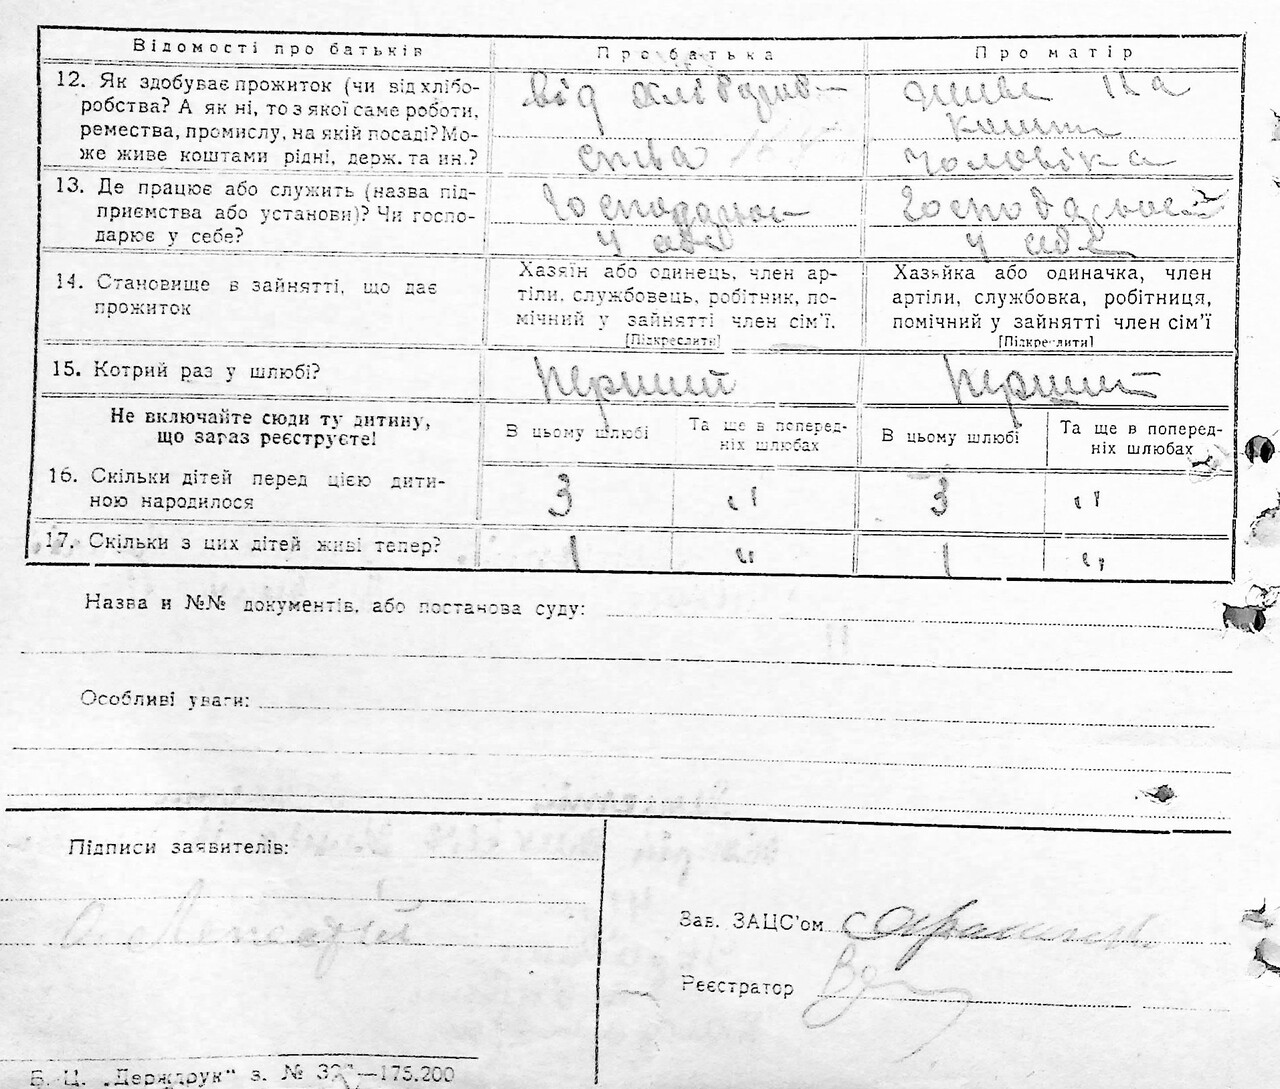 Відомості про батьків Про батька Про матір
12. Як здобуває прожиток (чи від хлібо- від хлібороб- живе на
робства? А як ні, то з якої саме роботи,
ремества, промислу, на якій посаді? Мо- кошти
же живе коштами рідні, держ. та ин.? ства чоловіка
13. Де працює або служить (назва під-
приємства або установи)? Чи госпо-
дарює у себе? у себе у себе
14. Становище в зайнятті, що дає
прожиток
Хазяїн або одинець, член ар-
тіли, службовець, робітник, по-
мічний у зайнятті член сім'ї.
[Підкреслити]
Хазяйка або одиначка, член
артіли, службовка, робітниця,
помічний у зайнятті член сім'ї
[Підкреслити]
15. Котрий раз у шлюбі? перший перший
Не включайте сюди ту дитину,
що зараз реєструєте!
В цьому шлюбі
Та ще в поперед-
ніх шлюбах
В цьому шлюбі
Та ще в поперед-
ніх шлюбах
16. Скільки дітей перед цією дити-
ною народилося 3 " 3 "
17. Скільки з цих дітей живі тепер? 1 " 1 "
Назва и №№ документів, або постанова суду:
Особливі уваги:
Підписи заявителів:
Зав. ЗАЦС'ом
Реєстратор
Б. Ц. „Держдрук" з. № —175.200